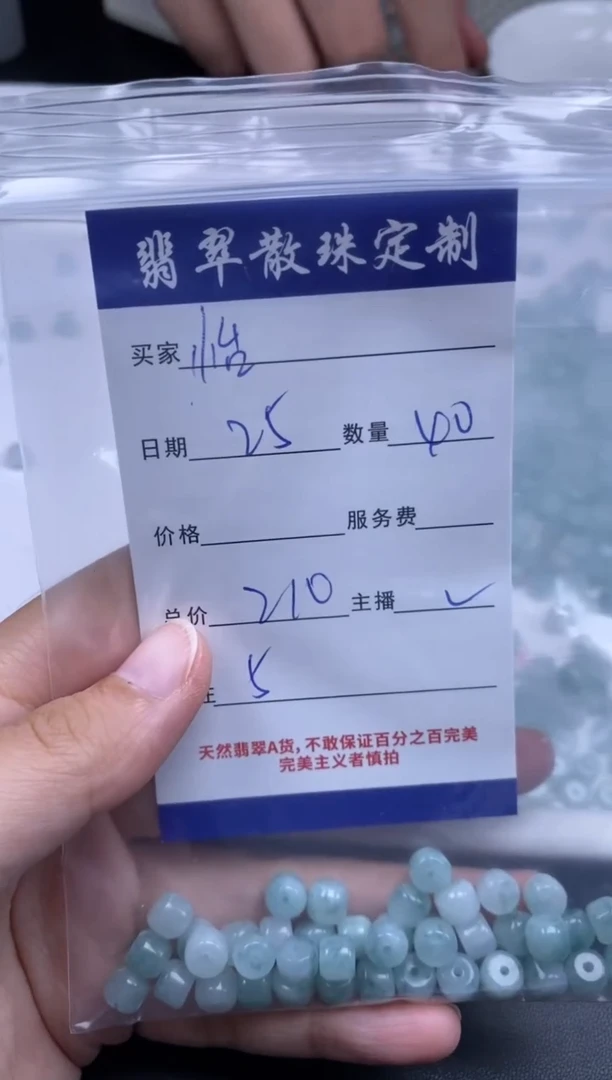 翡翠散珠定制
买家
日期 25 数量 40
价格 服务费
总价 210 主播 ✓
注 5
天然翡翠A货，不敢保证百分之百完美
完美主义者慎拍